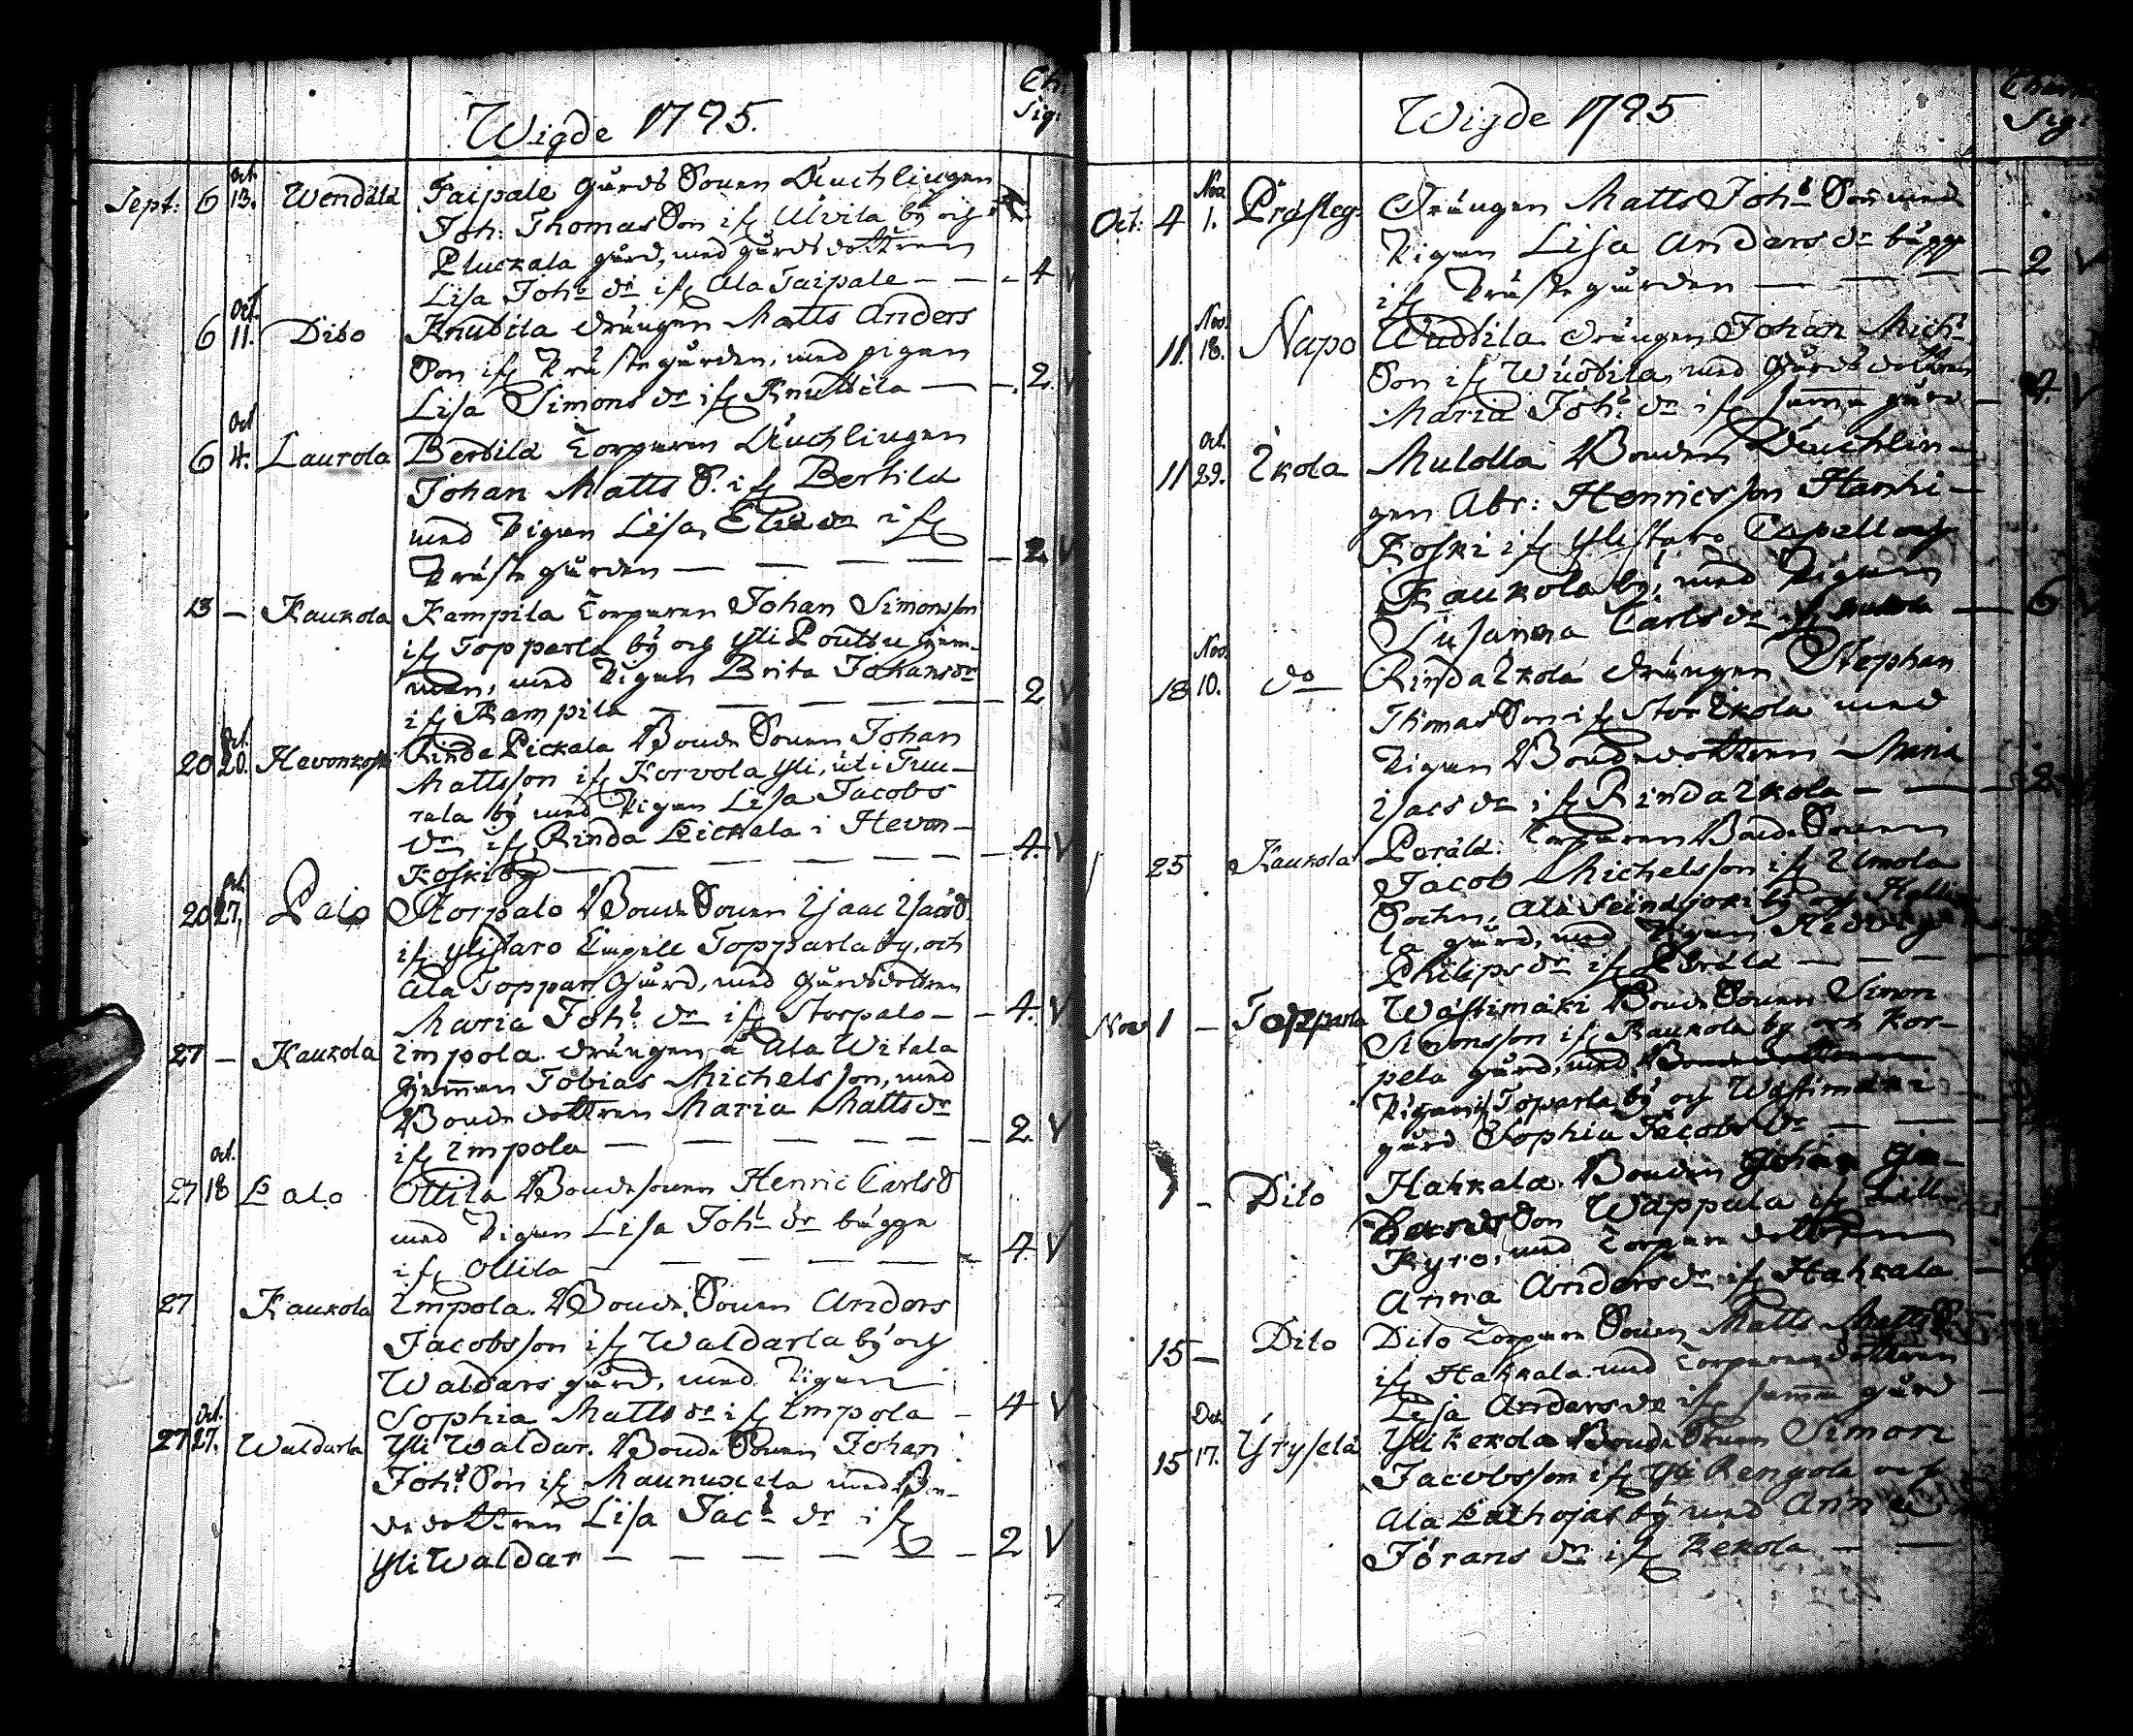 Wigde 1795.
Sept: 6 Oct. 13. Wendälä Taipale gårds Sonen Äinchlingen
Joh: Thomas Son ifr Alvila by och
Pluckala gård, med gårds dottren
Lisa Johs dr ifr Ala Taipale - - - 4 V
6 Oct. 11. Dito Knubila drängen Matts Anders
Son ifr Präste gården, med pigan
Lisa Simons dr ifr Knubila - - 2. V
6 Oct 4. Laurola Bertilä Torparen Änchlingen
Johan Matts S. ifr Bertilä
med Pigan Lisa dr ifr
Präste gården - - - - - 2 V
13 - Kaukola Kampila Torparen Johan Simonsson
ifr Topparla by och Yli Pouttu
med Pigan Brita Johansdr
ifr Kampila - - - - - 2 V
20 Oct. 20. Hevonkoski Rinda Pickala Bonde Sonen Johan
Mattsson ifr Korvola Yli, uti
by med Pigan Lisa Jacobs
dr ifr Rinda Pickala i Hevon-
koski by - - - - - 4. V
20 Oct. 27. Palo Storpalo Bonde Sonen Isaac Isacs S.
ifr Ylistaro Capell Topparla by, och
Ala Toppar Gård, med Gårdsdottren
Maria Johs dr ifr Storpalo - - 4. V
27 - Kaukola Impola drängen å Ala Witala
hemman Tobias Michelsson, med
Bonde dottren Maria Matts dr
ifr Impola - - - - - 2. V
27 Oct. 18 Palo Ollila Bondesonen Henric Carls S
med Pigan Lisa Johs dr bägge
ifr Ollila - - - - - 4 V
27 Kaukola Impola. Bonde Sonen Anders
Jacobsson ifr Waldarla by och
Waldars gård, med Pigan
Sophia Matts dr ifr Impola - 4 V
27 Oct. 27. Waldarla Yli Waldar. Bonde Sonen Johan
Johs Son ifr Maunuxela med Bon-
de dottren Lisa Jacs dr ifr
Yli Waldar - - - - - 2 V
Wigde 1795
Oct: 4 Nov. 1. Prästeg. Drängen Matts Johs Son med
Pigan Lisa Anders dr bägge
ifr Präste gården - - - 2 V
11. Nov. 18. Napo Wäubila drängen Johan Michs
Son ifr Wäubila, med Gårds dottren
Maria Johs dr ifr samma gård - 4. V
11 Oct. 29. Ikola Mulolla Bonden Änchlin-
gen Abr: Henricsson Hanhi-
koski ifr Ylistaro Capell och
Kaukola by, med Pigan
Susanna Carls dr ifr - 6
18 Nov. 10. do Rinda Ikola drängen Stephan
Thomas Son ifr Stor Ikola med
Pigan Bonde dottren Maria
Isacs dr ifr Rinda Ikola - - 2
25 Kaukola Perälä: Torparen Bonde Sonen
Jacob Michelsson ifr Ilmola
Sochn, Ala Seinäjoki by och
la gård, med Pigan Hedvig
Philips dr ifr Perälä - - -
Nov 1 - Topparla Wästimäki Bonde Sonen Simon
Simonsson ifr Kaukola by och Kor-
pela gård, med
Pigan ifr Toparla by och Wästimäki
gård Sophia Jacobs dr - -
1 - Dito Hahkala. Bonden Johan
Son Wäppula ifr Lill-
Kyro, med Torpare dottren
Anna Anders dr ifr Hahkala -
15 - Dito Dito Torpare Sonen Matts Matts S.
ifr Hahkala med Torpare dottren
Lisa Anders dr ifr samma gård -
15 Dec. 17. Yryselä Yli Kekola Bonde Sonen Simon
Jacobsson ifr Yli Rengola och
Ala Lathojas by med Anna
Jörans dr ifr Kekola - -